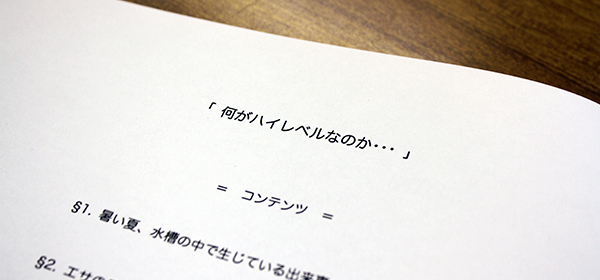 「 何がハイレベルなのか・・・ 」
= コンテンツ =
§1. 暑い夏、水槽の中で生じている出来事
§2. エサの